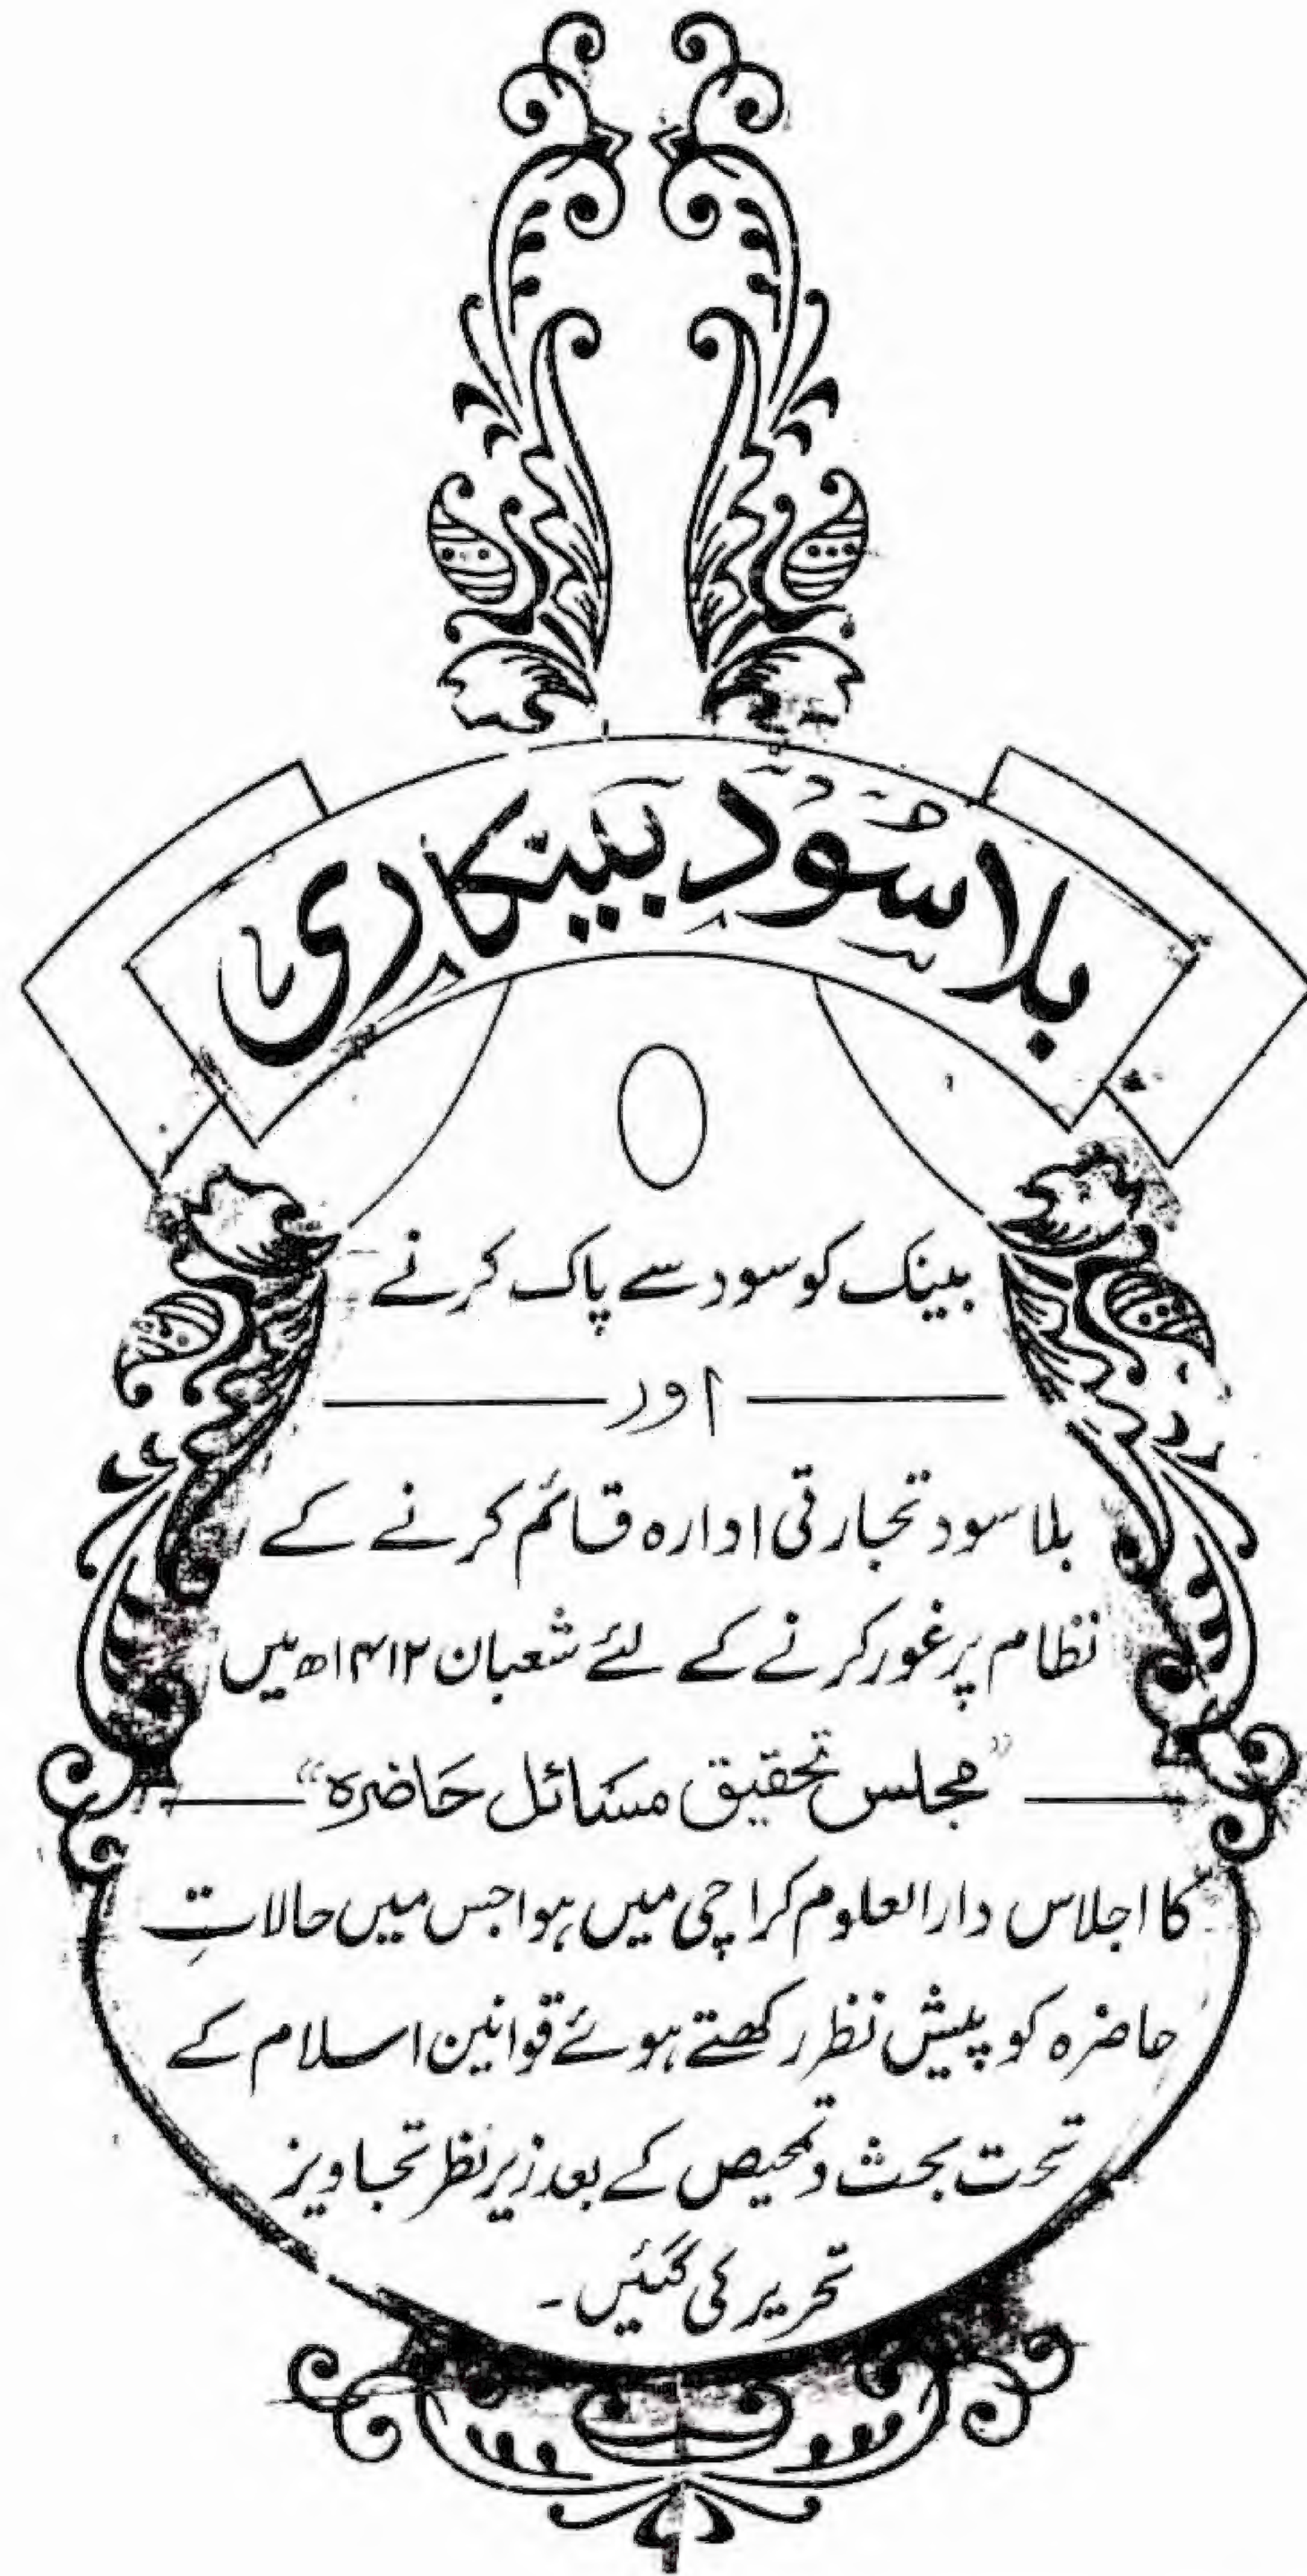 بلاسُود بینکاری
بینک کو سود سے پاک کرنے
اور
بلا سود تجارتی ادارہ قائم کرنے کے
نظام پر غور کرنے کے لئے شعبان ۱۴۱۲ھ میں
"مجلس تحقیق مسائل حاضرہ"
کا اجلاس دارالعلوم کراچی میں ہوا جس میں حالاتِ
حاضرہ کو پیش نظر رکھتے ہوئے قوانین اسلام کے
تحت بحث و تمحیص کے بعد زیر نظر تجاویز
تحریر کی گئیں۔